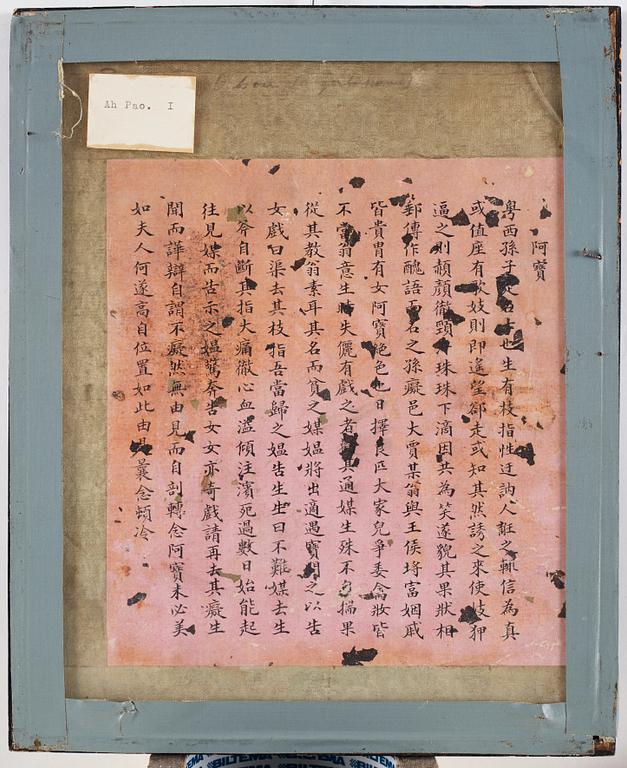 Ah Pao. I
阿寶
粵西孫子 名士也生有枝指性迂訥人誑之輒信為真
或值座有歌妓則即遙望郤走或知其然誘之來使妓狎
逼之則赬顏徹頸汗珠珠下滴因共為笑遂貌其呆狀相
郵傳作醜語而名之孫癡邑大賈某翁與王侯埒富姻戚
皆貴冑有女阿寶絕色也日擇良匹大家兒爭委禽妝皆
不當翁意生時失儷有戲之者 其通媒生殊不自揣果
從其教翁素耳其名而貧之媒媼將出適遇寶問之以告
女戲曰渠去其枝指吾當歸之媼告生生曰不難媒去生
以斧自斷其指大痛徹心血溢傾注濱死過數日始能起
往見媒而告示之媼驚奔告女女亦奇戲請再去其癡生
聞而譁辯自謂不癡然無由見而自剖轉念阿寶未必美
如夫人何遂高自位置如此由是曩念頓冷
BILTEMA